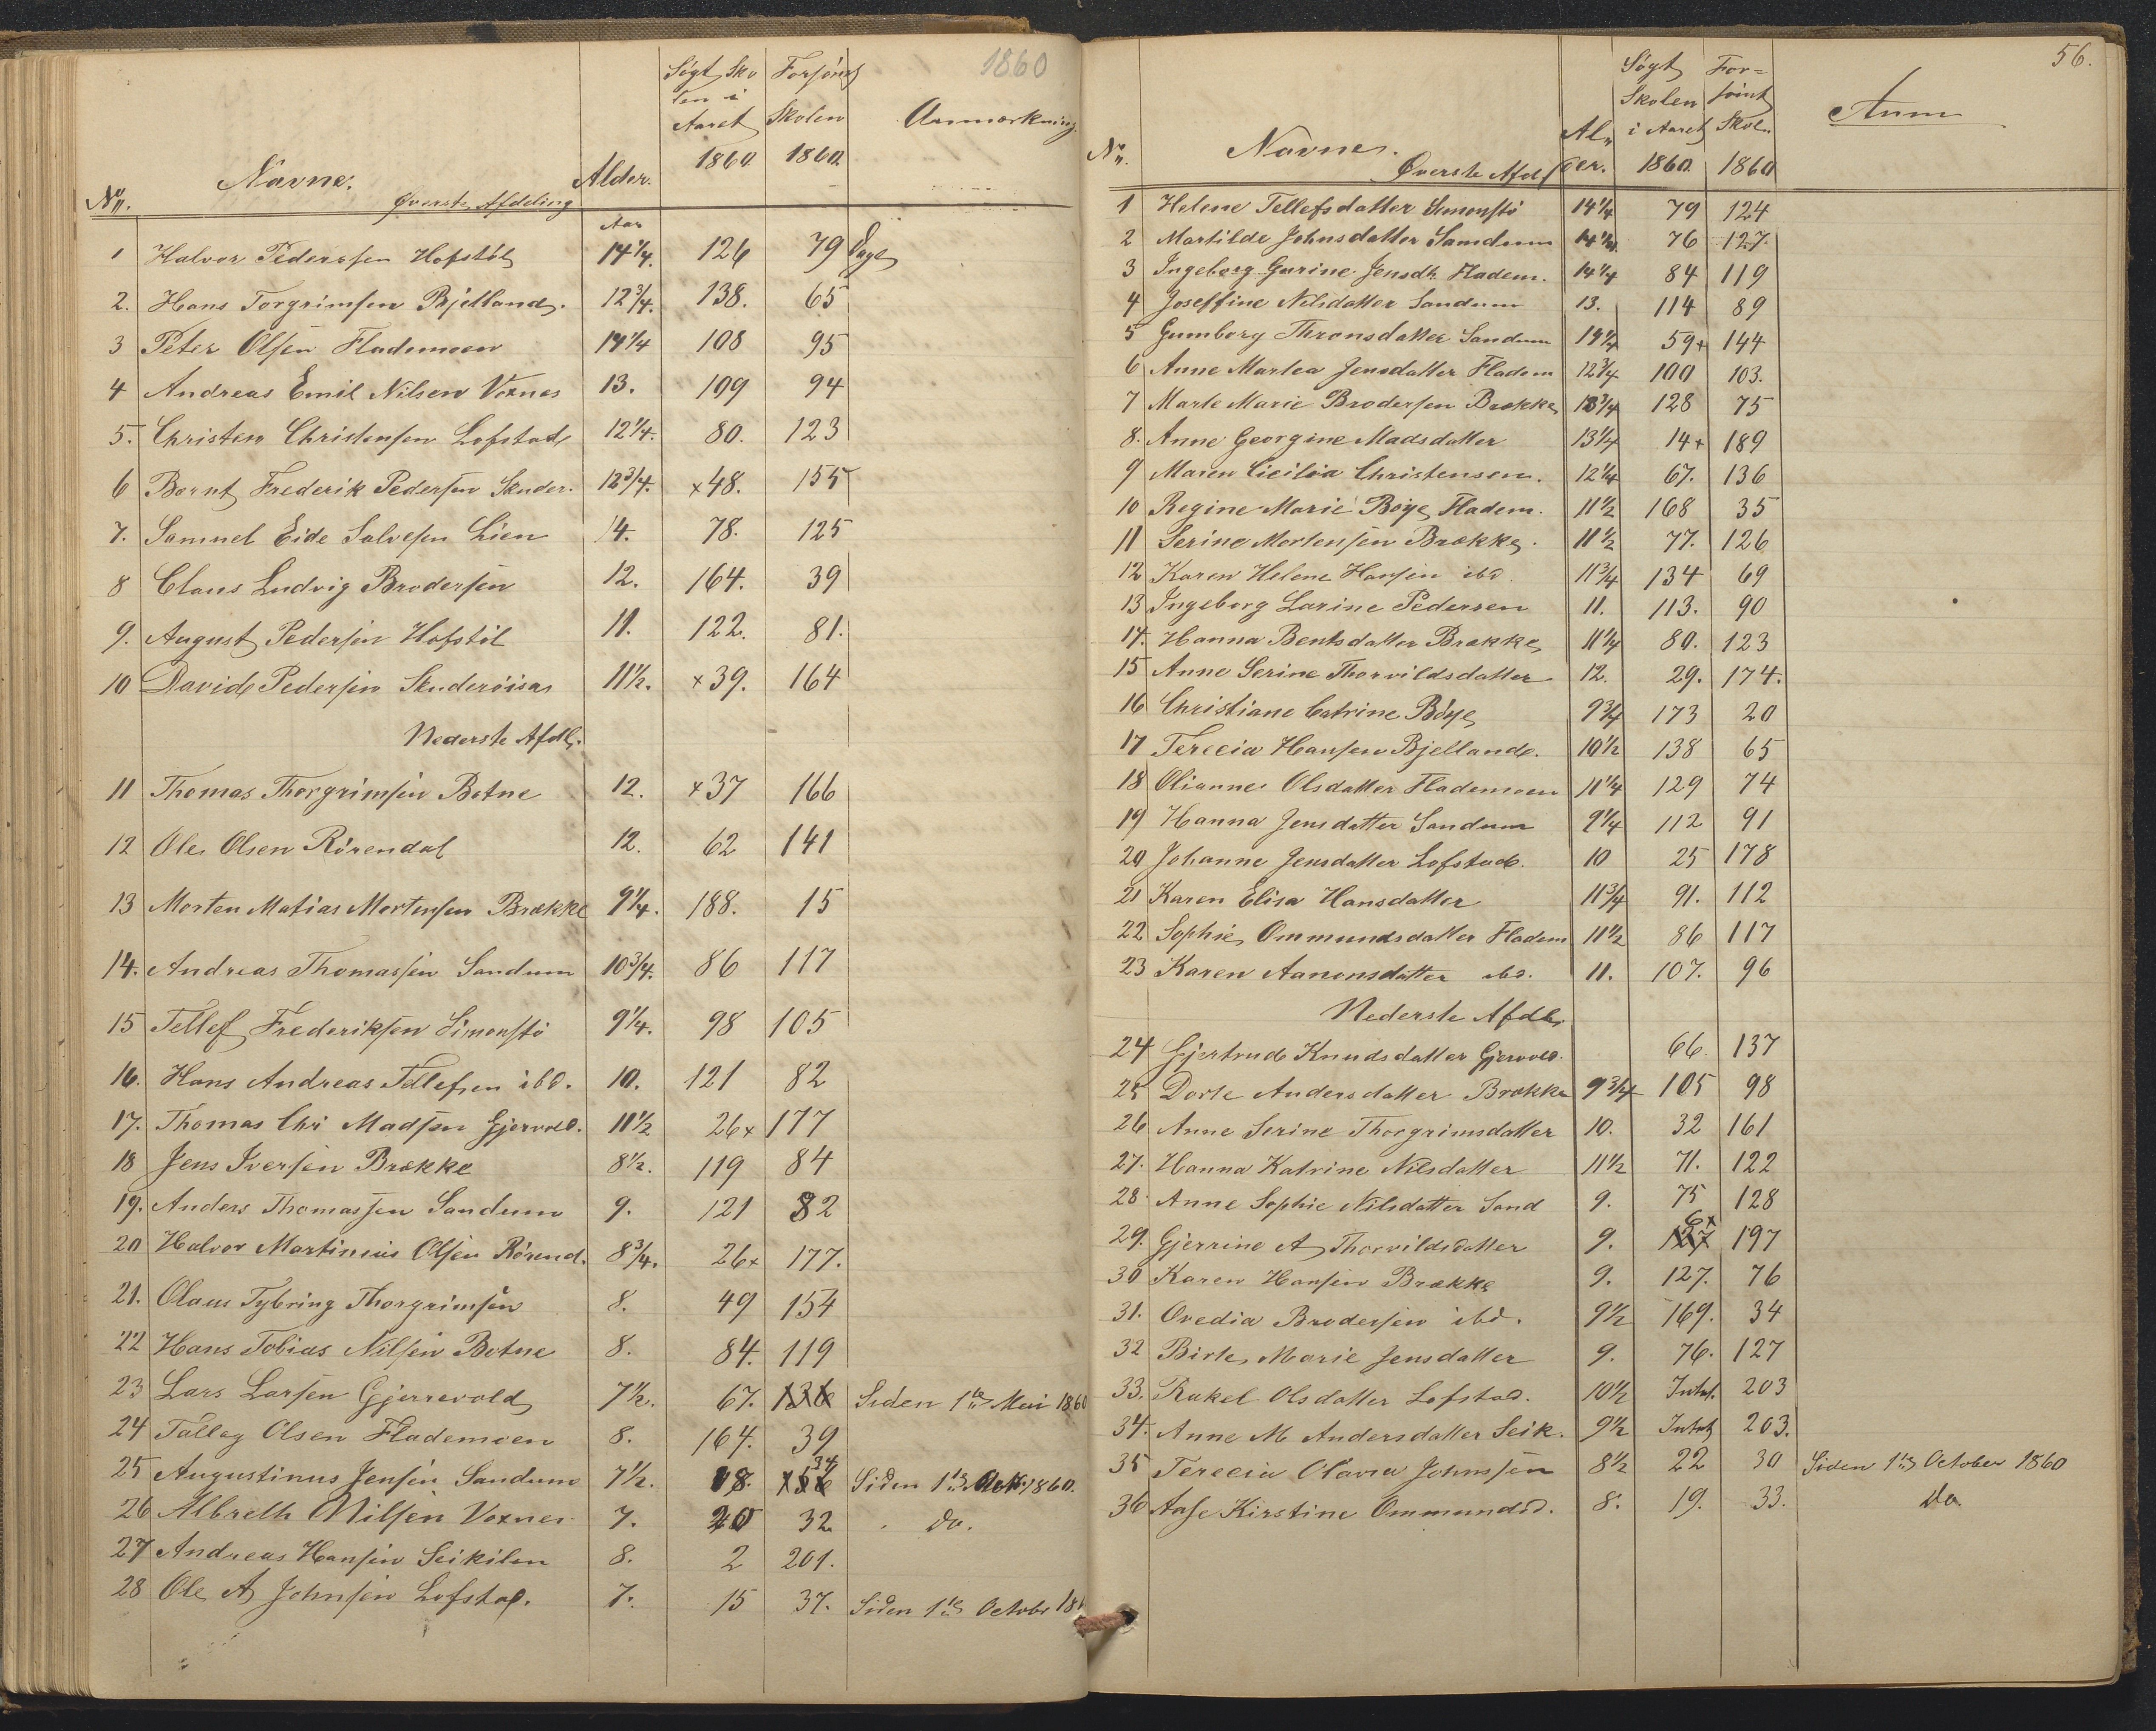 1860
Nº. Navne. Øverste Afdeling Alder. Søgt Skolen i Aaret 1860 Forsømt Skolen 1860 Anmærkning
Aar
1 Halvor Pedersen Hofstøl 14 1/4. 126 79 Dage
2. Hans Torgrimsen Bjelland. 12 3/4. 138. 65
3 Peter Olsen Flademoen 14 1/4 108 95
4 Andreas Emil Nilsen Voxnes 13. 109 94
5. Christen Christensen Lofstad 12 1/4. 80. 123
6 Bernt Frederik Pedersen Skuder. 12 3/4. x48. 155
7. Samuel Eide Salvesen Lien 14. 78. 125
8 Claus Ludvig Brodersen 12. 164. 39
9. August Pedersen Hofstøl 11. 122. 81.
10 David Pedersen Skuderøisas 11 1/2. x39. 164
Nederste Afdl.
11 Thomas Thorgrimsen Botne 12. x37 166
12 Ole Olsen Rørendal 12. 62 141
13 Morten Matias Mortensen Brække 9 1/4. 188. 15
14. Andreas Thomassen Sandum 10 3/4. 86 117
15 Tellef Frederiksen Simonstø 9 1/4. 98 105
16. Hans Andreas Tellefsen ibd. 10. 121 82
17. Thomas Chr Madsen Gjervol. 11 1/2 26x 177
18 Jens Iversen Brække 8 1/2. 119 84
19. Anders Thomassen Sandum 9. 121 82
20 Halvor Martinius Olsen Rørend. 8 3/4. 26x 177.
21. Olaus Tybring Thorgrimsen 8. 49 154
22 Hans Tobias Nilsen Botne 8. 84. 119
23 Lars Larsen Gjerrevold 7 1/2. 67. 136 Siden 1te Mai 1860
24 Tallag Olsen Flademoen 8. 164. 39
25 Augustinus Jensen Sandum 7 1/2. 18. 34 Siden 1te Oct. 1860.
26 Albreth Nilsen Voxnes 7. 20 32 do.
27 Andreas Hansen Seikilen 8. 2 201.
28 Ole A Johnsen Lofstad. 7. 15 37. Siden 1te Octobr 18
56.
Nº. Navne. Øverste Afdl Alder. Søgt Skolen i Aaret 1860. Forsømt Skolen 1860 Anm
1 Helene Tellefsdatter Simonstø 14 1/4 79 124
2 Martilde Johnsdatter Sandum 14 1/4. 76 127.
3 Ingeborg Gurine Jensdt. Fladem. 14 1/4 84 119
4 Joseffine Nilsdatter Sandum 13. 114 89
5 Gumborg Thronsdatter Sandum 14 1/4 59+ 144
6 Anne Martea Jensdatter Fladem 12 3/4 100 103.
7 Marte Marie Brodersen Brække 13 3/4 128 75
8. Anne Georgine Madsdatter 13 1/4 14+ 189
9 Maren Cicilia Christensen. 12 1/4 67. 136
10 Regine Marie Bøye Fladem. 11 1/2 168 35
11 Serine Mortensen Brække. 11 1/2 77. 126
12 Karen Helene Hansen ibd. 11 3/4 134 69
13 Ingeborg Larine Pedersen 11. 113. 90
14. Hanna Bentsdatter Brække 11 1/4 80. 123
15 Anne Serine Thorvildsdatter 12. 29. 174.
16 Christiane Catrine Bøye 9 3/4 173 20
17 Terecia Hansen Bjelland. 10 1/2 138 65
18 Olianne Olsdatter Flademoen 11 1/4 129 74
19 Hanna Jensdatter Sandum 9 1/4 112 91
20 Johanne Jensdatter Lofstad. 10 25 178
21 Karen Elisa Hansdatter 11 3/4 91. 112
22 Sophie Ommundsdatter Fladem 11 1/2 86 117
23 Karen Aanonsdatter ibd. 11. 107. 96
Nederste Afdl.
24 Gjertrud Knudsdatter Gjervold. 66. 137
25 Dorte Andersdatter Brække 9 3/4 105 98
26 Anne Serine Thorgrimsdatter 10. 32 161
27. Hanna Katrine Nilsdatter 11 1/2 71. 122
28 Anne Sophie Nilsdatter Sand 9. 75 128
29. Gjerrine A Thorvildsdatter 9. 6x 127 197
30 Karen Hansen Brække 9. 127. 76
31. Ovedia Brodersen ibd. 9 1/2 169. 34
32 Birte Marie Jensdatter 9. 76. 127
33. Rakel Olsdatter Lofstad. 10 1/2 Intet. 203
34. Anne M Andersdatter Seik. 9 1/2 Intet 203.
35 Terecia Olavia Johnsen 8 1/2 22 30 Siden 1te October 1860
36 Aase Kirstine Ommundsd. 8. 19. 33. do